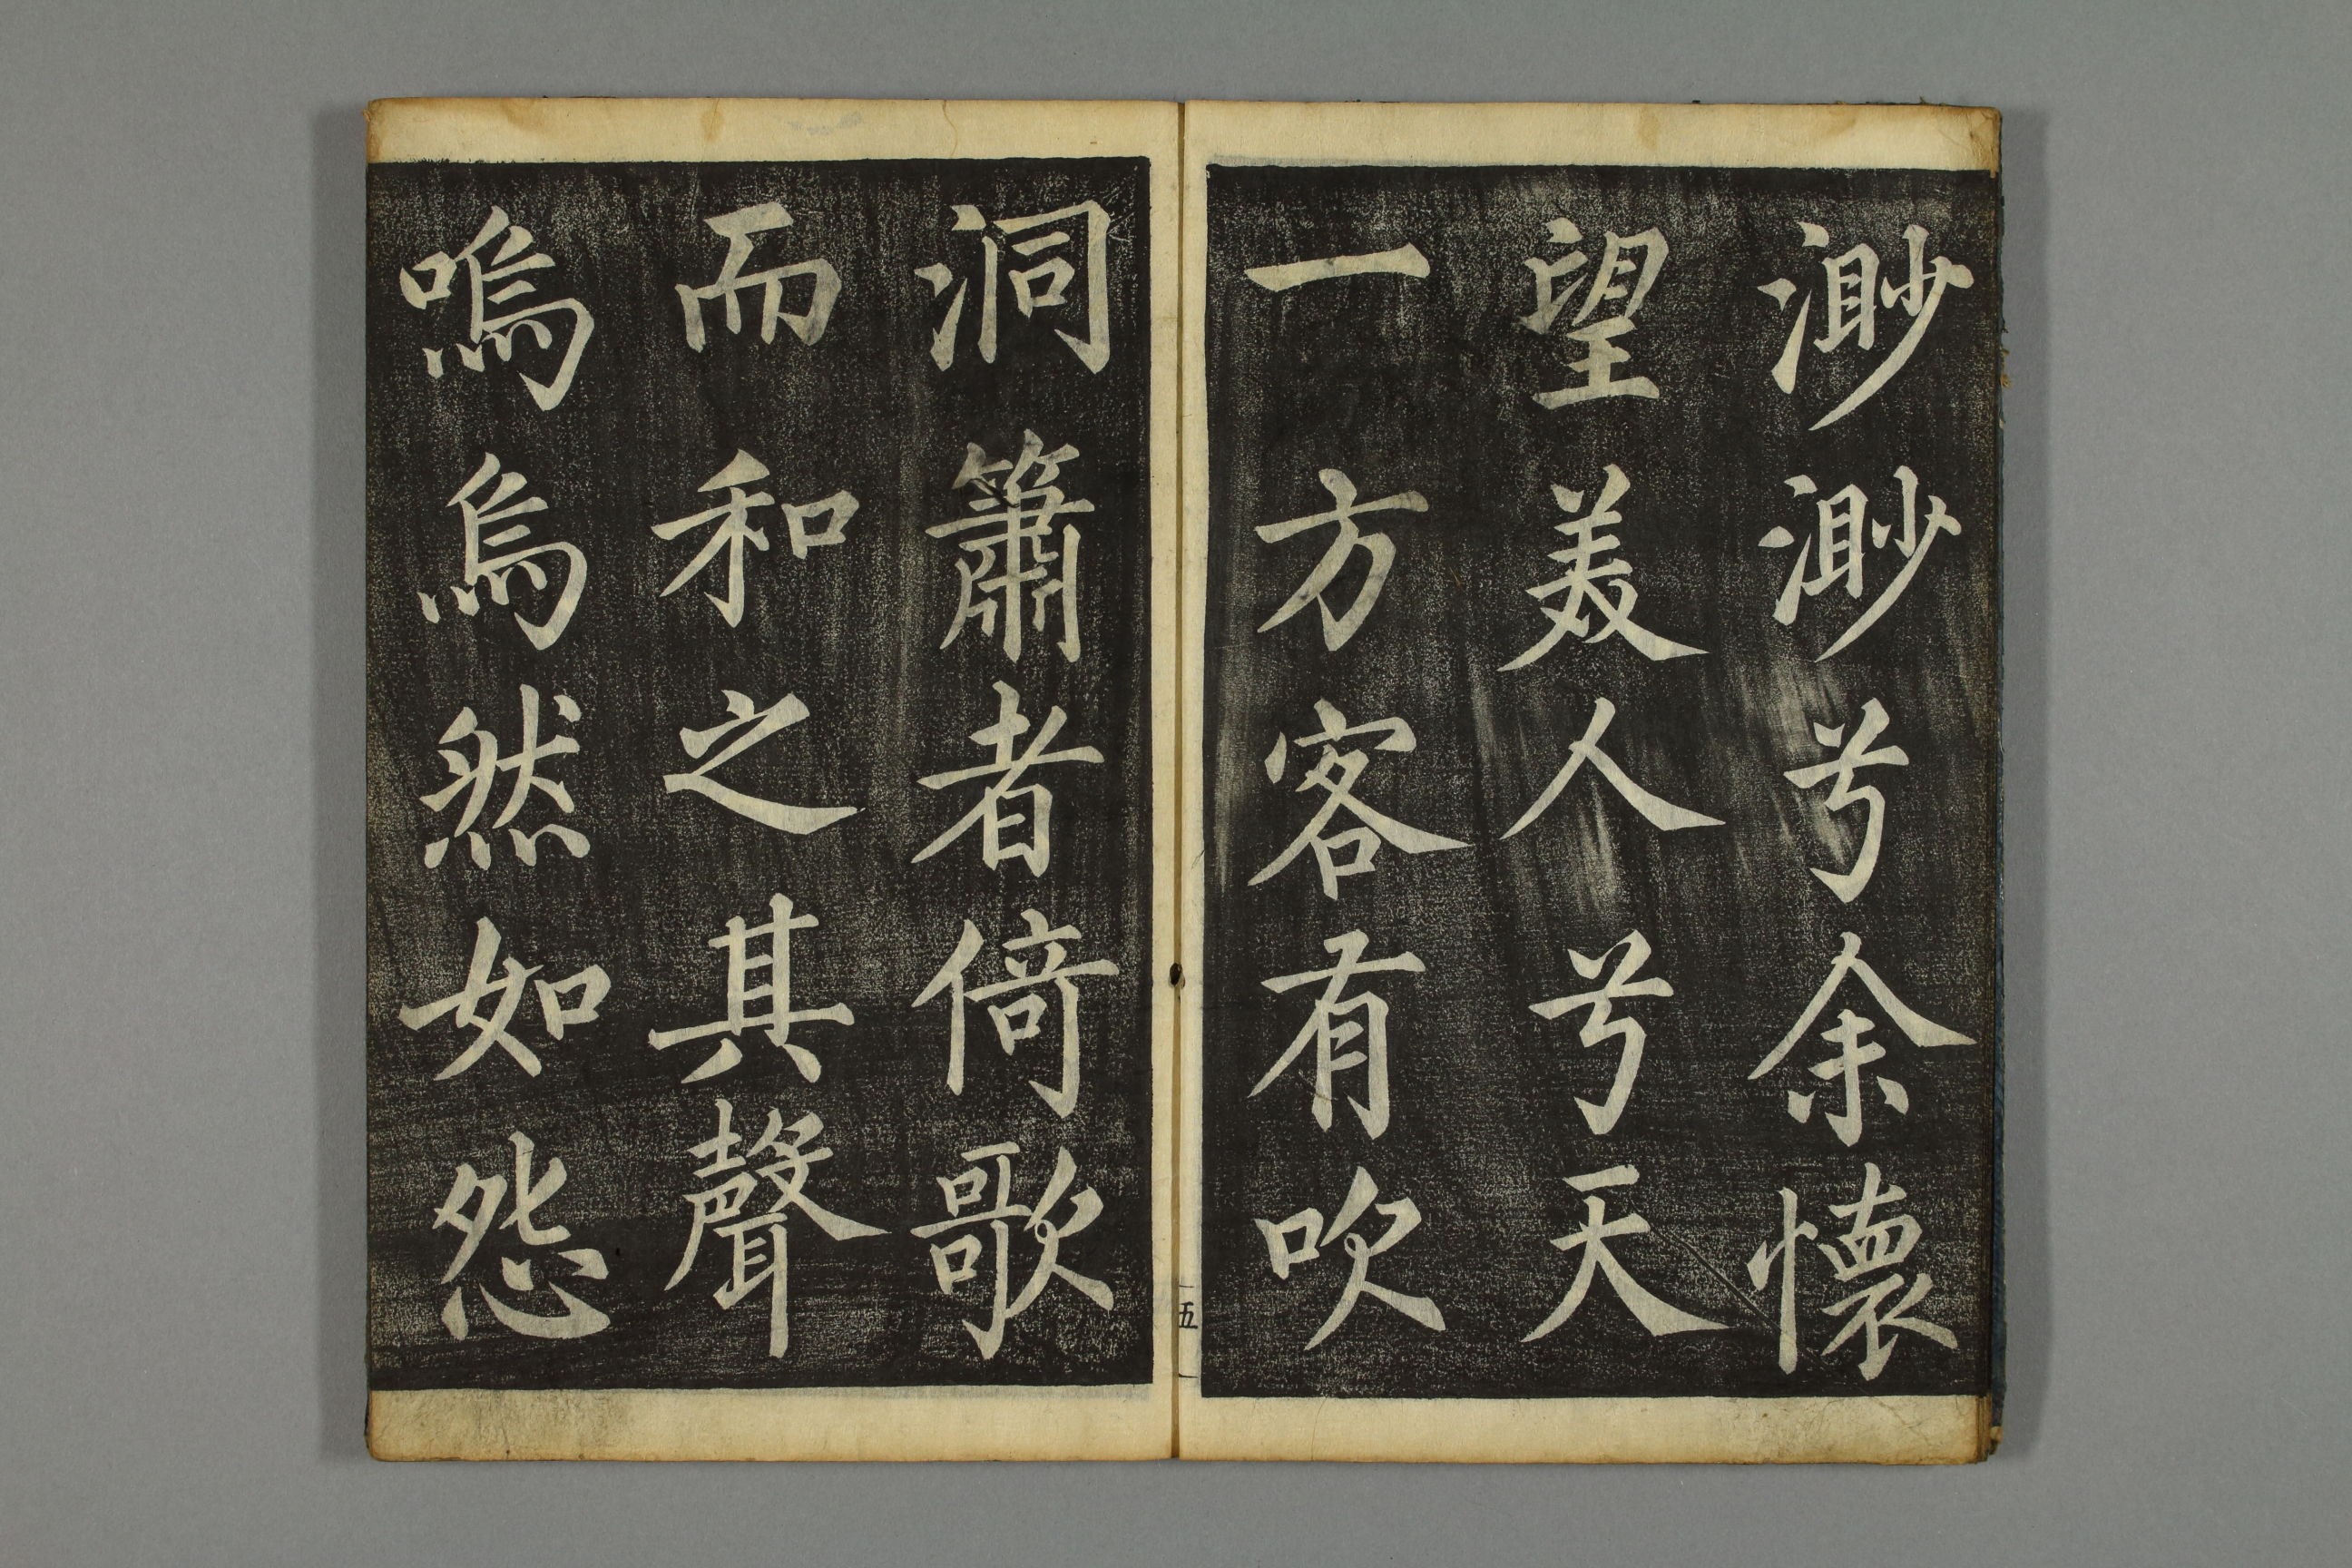 渺渺兮余懷
望美人兮天
一方客有吹
洞簫者倚歌
而和之其聲
嗚嗚然如怨
五